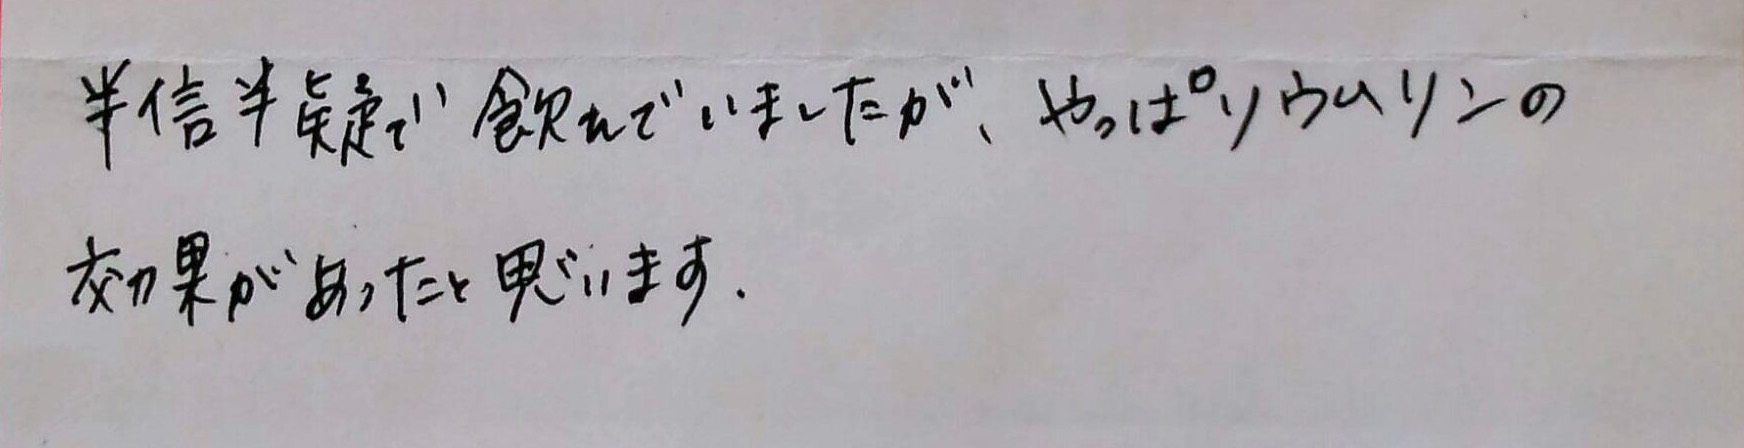 半信半疑で飲んでいましたが、やっぱりウムリンの
効果があったと思います.